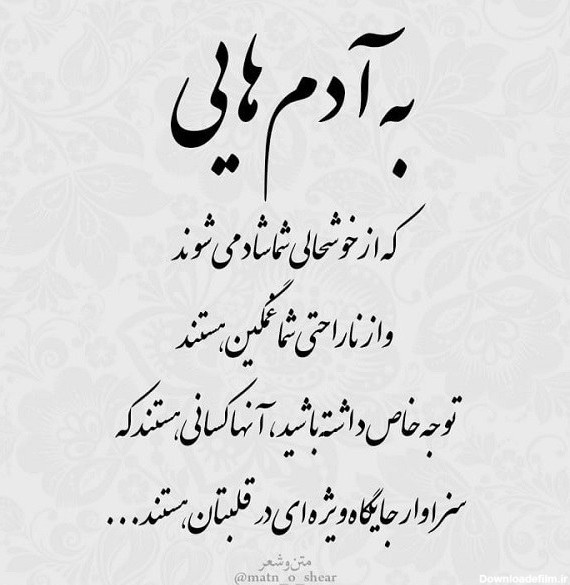 به آدم هایی
که از خوشحالی شما شاد می شوند
و از ناراحتی شما غمگین هستند
توجه خاص داشته باشید، آنها کسانی هستند که
سزاوار جایگاه ویژه ای در قلبتان هستند...
متن و شعر
@matn_o_shear
Downloadefilm.ir